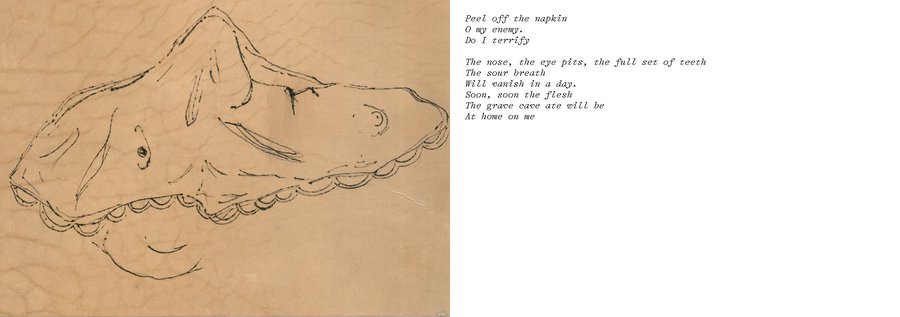 Peel off the napkin
O my enemy.
Do I terrify
The nose, the eye pits, the full set of teeth
The sour breath
Will vanish in a day.
Soon, soon the flesh
The grave cave ate will be
At home on me